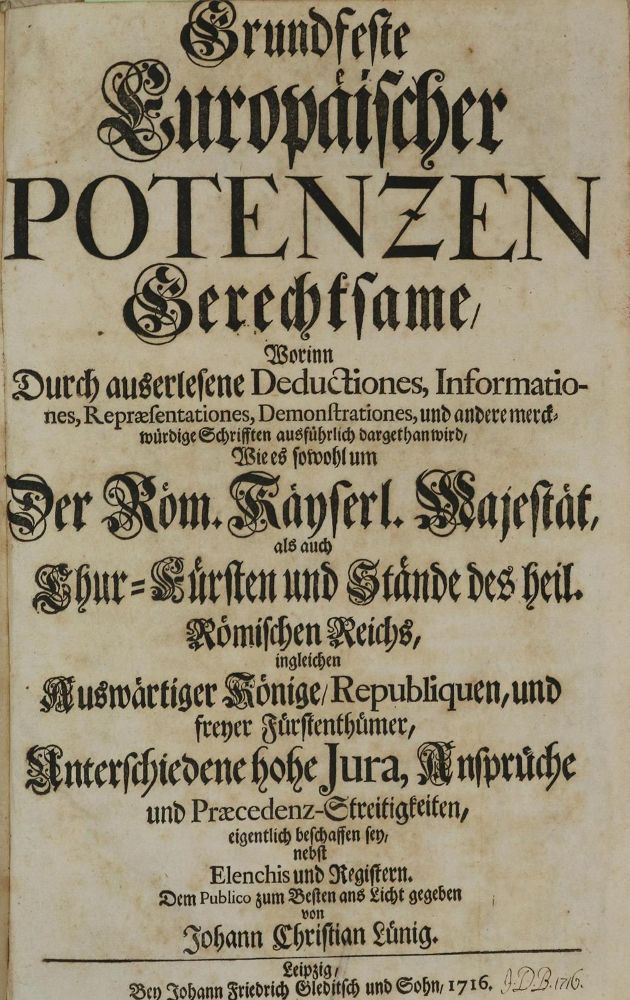 Grundfeste
Europäischer
POTENZEN
Gerechtsame/
Worinn
Durch auserlesene Deductiones, Informatio-
nes, Repræsentationes, Demonstrationes, und andere merck-
würdige Schrifften ausführlich dargethan wird/
Wie es sowohl um
Der Röm. Käyserl. Majestät,
als auch
Chur-Fürsten und Stände des heil.
Römischen Reichs,
ingleichen
Auswärtiger Könige/ Republiquen, und
freyer Fürstenthümer,
Unterschiedene hohe Jura, Ansprüche
und Præcedenz-Streitigkeiten,
eigentlich beschaffen sey,
nebst
Elenchis und Registern.
Dem Publico zum Besten ans Licht gegeben
von
Johann Christian Lünig.
Leipzig,
Bey Johann Friedrich Gleditsch und Sohn, 1716. J.D.B. 1716.